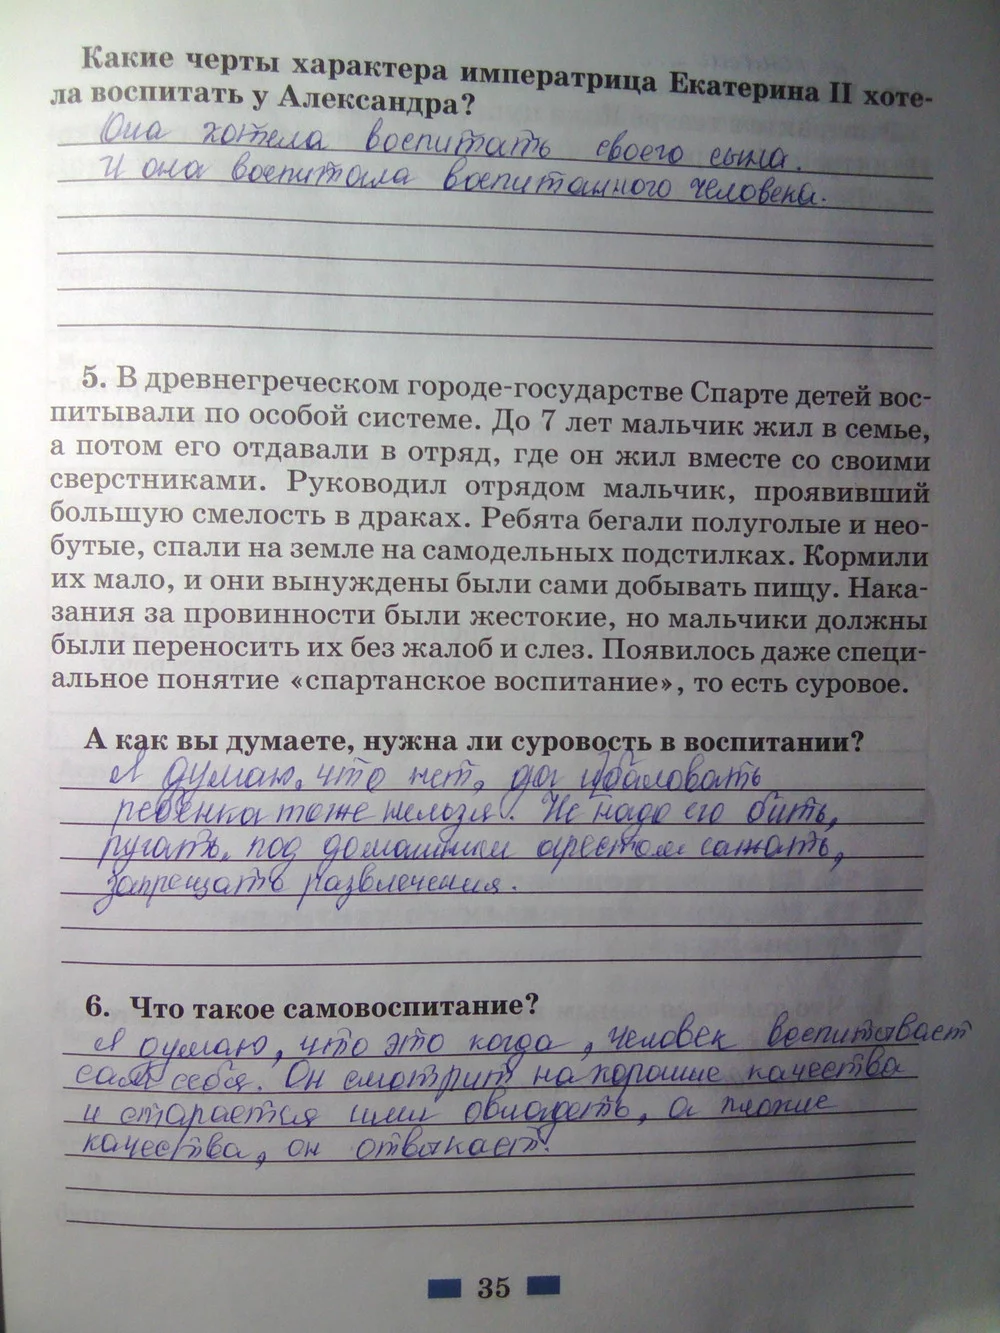 Какие черты характера императрица Екатерина II хоте-
ла воспитать у Александра?
Она хотела воспитать своего сына.
И она воспитала воспитанного человека.
5. В древнегреческом городе-государстве Спарте детей вос-
питывали по особой системе. До 7 лет мальчик жил в семье,
а потом его отдавали в отряд, где он жил вместе со своими
сверстниками. Руководил отрядом мальчик, проявивший
большую смелость в драках. Ребята бегали полуголые и нео-
бутые, спали на земле на самодельных подстилках. Кормили
их мало, и они вынуждены были сами добывать пищу. Нака-
зания за провинности были жестокие, но мальчики должны
были переносить их без жалоб и слез. Появилось даже специ-
альное понятие «спартанское воспитание», то есть суровое.
А как вы думаете, нужна ли суровость в воспитании?
Я думаю, что нет, да избаловать
ребёнка тоже нельзя. Не надо его бить,
ругать, под домашним арестом сажать,
запрещать развлечения.
6. Что такое самовоспитание?
Я думаю, что это когда, человек воспитывает
сам себя. Он смотрит на хорошие качества
и старается ими овладеть, а плохие
качества, он отвыкает.
35